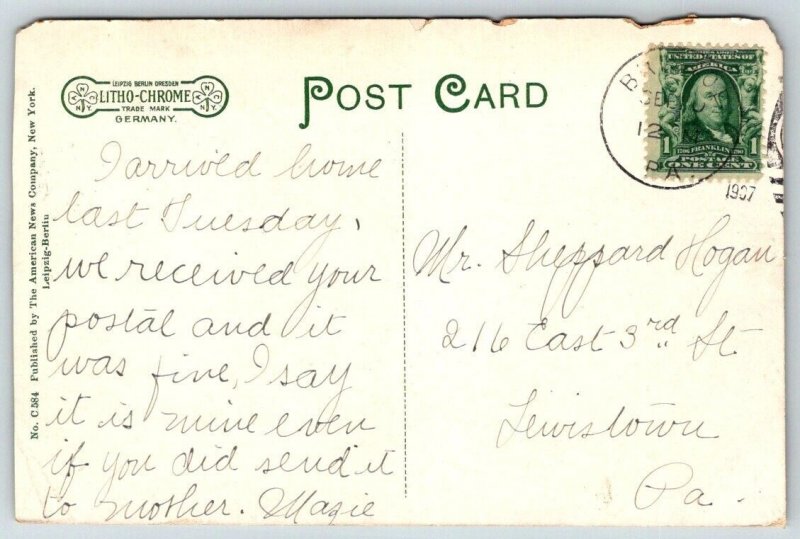 No. C 584 Published by The American News Company, New York.
Leipzig-Berlin
LEIPZIG BERLIN DRESDEN
LITHO-CHROME
TRADE MARK
GERMANY.
POST CARD
I arrived home
last Tuesday,
we received your
postal and it
was fine, I say
it is mine even
if you did send it
to mother. Mazie
SEP
12
PA.
1907
UNITED STATES OF
AMERICA
1 1
FRANKLIN
POSTAGE
ONE CENT
Mr. Sheppard Hogan
216 East 3rd St.
Lewistown
Pa.